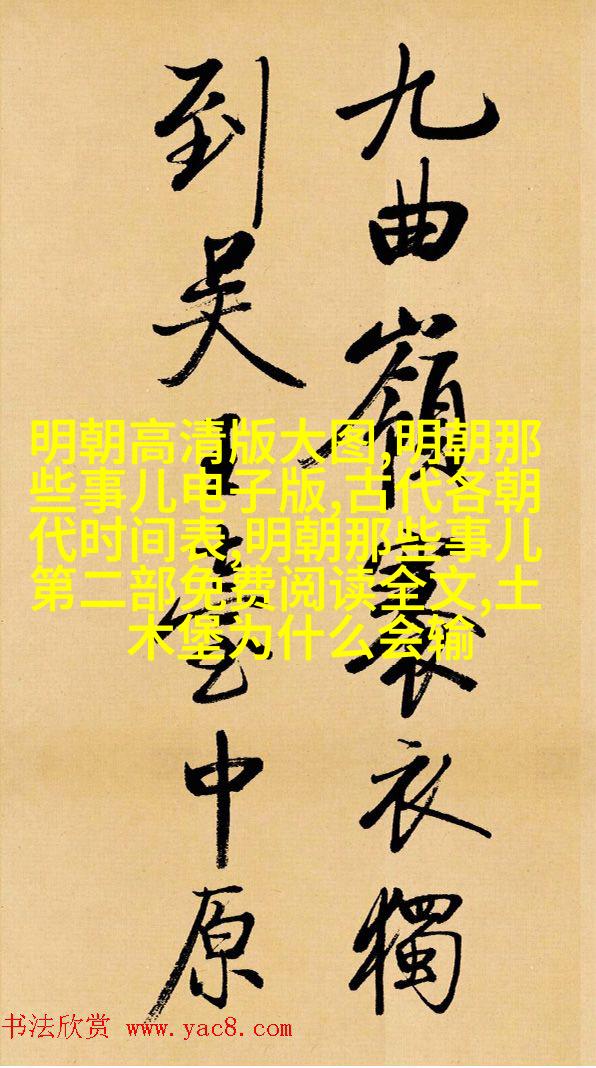 九曲嶺褰衣獨
到吴王臺中原
明朝高清版大图,明朝那
些事儿电子版,古代各朝
代时间表,明朝那些事儿
第二部免费阅读全文,土
木堡为什么会输
书法欣赏 www.yac8.com